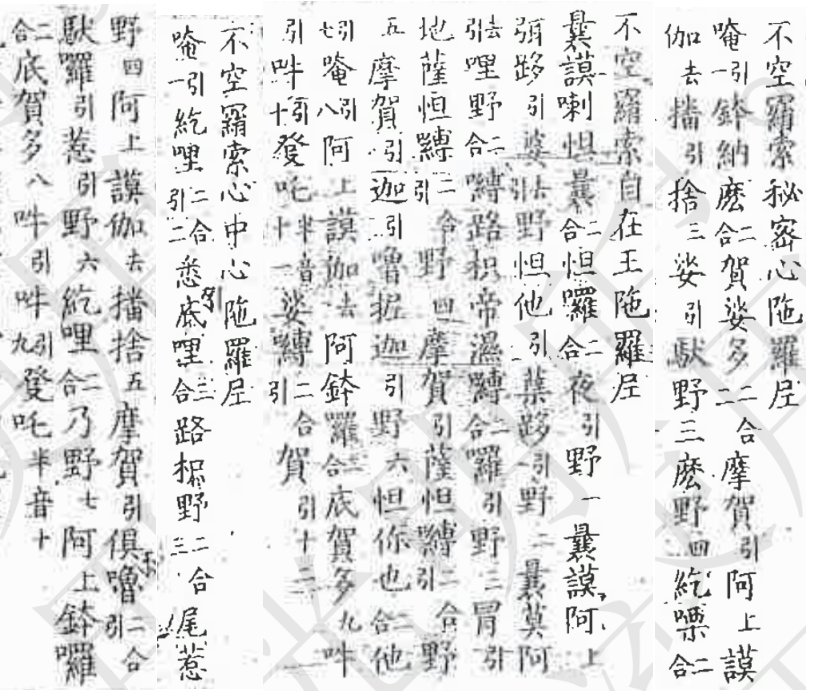 不空羂索秘密心陁羅尼
唵一引鉢納麽二合賀娑多二二合摩賀引阿上謨
伽去播引捨三娑引䭾野三麽野四紇㗚二合
不空羂索自在王陁羅尼
曩謨喇怛曩二合怛囉二合夜引野一曩謨阿上
弭路引婆去引野怛他引蘖路引野二曩莫阿
去引哩野二合嚩路枳帝濕嚩二合囉引野三冒引
地薩怛嚩二合引野四摩賀引薩怛嚩二合引野
五摩賀引迦引嚕抳迦引野六怛你也二合他
七引唵八引阿上謨伽去阿鉢羅二合底賀多九吽
引吽十引發吒半音十一娑嚩二合引賀引十二
不空羂索心中心陁羅尼
唵一引紇哩二合引二悉底哩三合路枳野二合三尾惹
野四阿上謨伽去播捨五摩賀引俱嚕二合引
䭾囉引惹引野六紇哩二合乃野七阿上鉢囉
二合底賀多八吽引吽九引發吒半音十